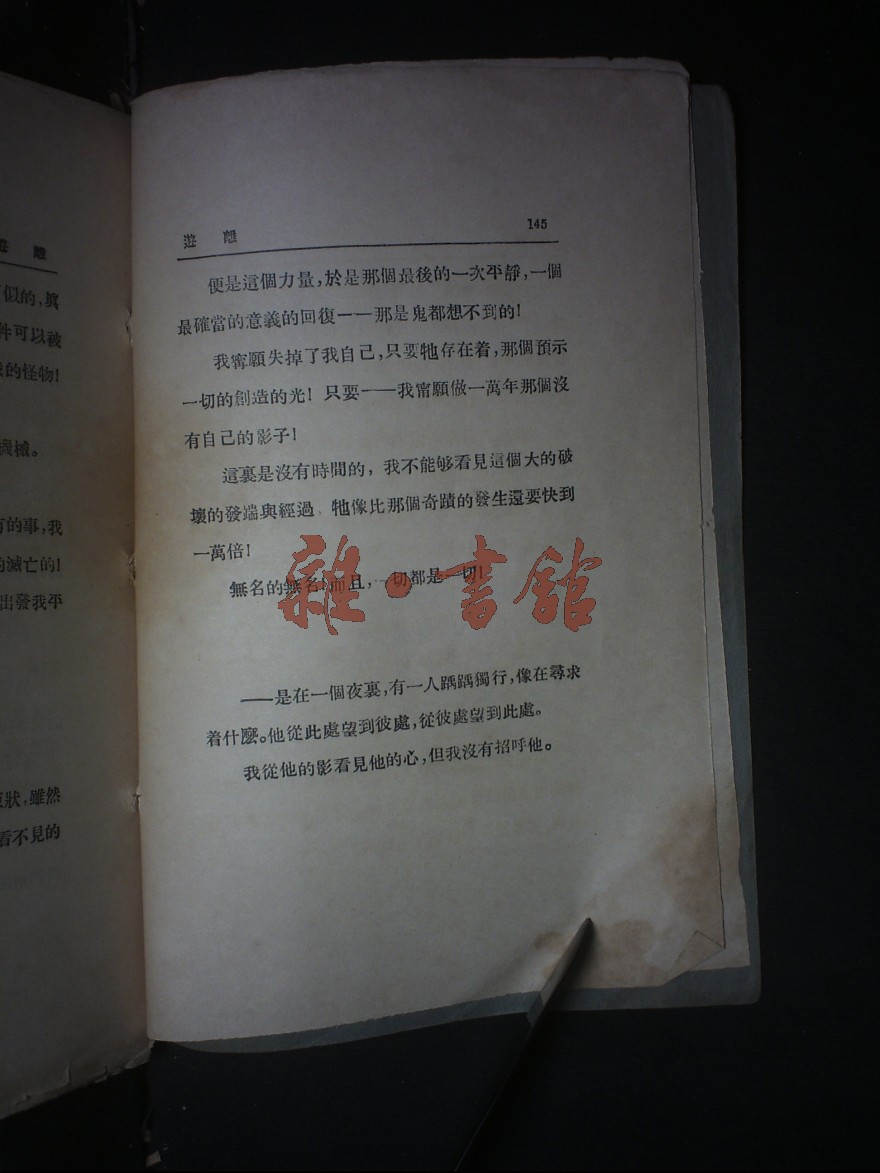 遊離
似的，眞
件可以被
的怪物！
機械。
有的事，我
的滅亡的！
出發我平
狀，雖然
看不見的
遊離 145
便是這個力量，於是那個最後的一次平靜，一個
最確當的意義的回復——那是鬼都想不到的！
我寗願失掉了我自己，只要牠存在着，那個預示
一切的創造的光！只要——我甯願做一萬年那個沒
有自己的影子！
這裏是沒有時間的，我不能够看見這個大的破
壞的發端與經過，牠像比那個奇蹟的發生還要快到
一萬倍！
無名的無名，而且，一切都是一切！
雜·書館
——是在一個夜裏，有一人踽踽獨行，像在尋求
着什麼。他從此處望到彼處，從彼處望到此處。
我從他的影看見他的心，但我沒有招呼他。